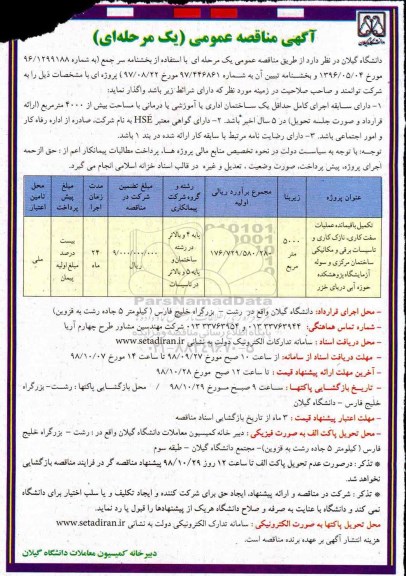 آگهی مناقصه عمومی (یک مرحله‌ای)
دانشگاه گیلان در نظر دارد از طریق مناقصه عمومی یک مرحله ای با استفاده از بخشنامه سر جمع (به شماره ۹۶/۱۲۹۹۱۸۸
مورخ ۱۳۹۶/۰۵/۰۴ و بخشنامه تبیین آن به شماره ۹۷/۴۴۶۸۶۱ مورخ ۹۷/۰۸/۲۲) پروژه ای با مشخصات ذیل را به
شرکت توانمند و صاحب صلاحیت در زمینه مورد نظر که دارای شرائط زیر باشد واگذار نماید:
۱- دارای سابقه اجرای کامل حداقل یک ساختمان اداری یا آموزشی یا درمانی با مساحت بیش از ۴۰۰۰ مترمربع (ارائه
قرارداد و صورت جلسه تحویل) در ۵ سال اخیر باشد. ۲- دارای گواهی معتبر HSE به نام شرکت، صادره از اداره رفاه کار
و امور اجتماعی باشد. ۳- دارای رضایت نامه مرتبط با سابقه کار ارائه شده در بند ۱ باشد.
توجه: با توجه به سیاست دولت در نحوه تخصیص منابع مالی پروژه ها، پرداخت مطالبات پیمانکار اعم از : حق الزحمه
اجرای پروژه، پیش پرداخت، صورت وضعیت ، تعدیل و غیره در قالب اسناد خزانه اسلامی انجام می گیرد.
عنوان پروژه | زیربنا | مجموع برآورد ریالی اولیه | رشته و گروه شرکت پیمانکاری | مبلغ تضمین شرکت در مناقصه | مدت زمان اجرا | مبلغ پیش پرداخت | محل تامین اعتبار
تکمیل باقیمانده عملیات سفت کاری، نازک کاری و تاسیسات برقی و مکانیکی ساختمان مرکزی و سوله آزمایشگاه پژوهشکده حوزه آبی دریای خزر | ۵۰۰۰ متر مربع | ۱۷۶/۷۲۹/۵۸۰/۲۸۰ | پایه ۴ و بالاتر در رشته ساختمان و پایه ۵ و بالاتر در تاسیسات | ۹/۰۰۰/۰۰۰/۰۰۰ ریال | ۲۴ ماه | بیست درصد مبلغ اولیه پیمان | ملی
ParsNamadData
- محل اجرای قرارداد: دانشگاه گیلان واقع در رشت - بزرگراه خلیج فارس (کیلومتر ۵ جاده رشت به قزوین)
- شماره تماس هماهنگی: ۳۳۷۶۳۹۴۴ ۰۱۳ و ۳۳۷۶۳۹۵۴ ۰۱۳ شرکت مهندسین مشاور طرح چهارم آریا
- محل دریافت اسناد : سامانه تدارکات الکترونیک دولت به نشانی www.setadiran.ir
- مهلت دریافت اسناد از سامانه: از ساعت ۱۰ صبح مورخ ۹۸/۰۹/۲۷ تا ساعت ۱۴ مورخ ۹۸/۱۰/۰۷
- آخرین مهلت ارائه پیشنهاد قیمت : تا ساعت ۱۲ صبح مورخ ۹۸/۱۰/۲۸
- تاریخ بازگشایی پاکتهـا : ساعت ۹ صبـح مـورخ ۹۸/۱۰/۲۹ / محل بازگشایی پاکتها : رشت- بزرگراه
خلیج فارس - دانشگاه گیلان
- مهلت اعتبار پیشنهاد قیمت : ۳ ماه از تاریخ بازگشایی اسناد مناقصه
- محل تحویل پاکت الف به صورت فیزیکی : دبیر خانه کمیسیون معاملات دانشگاه گیلان واقع در : رشت - بزرگراه خلیج
فارس (کیلومتر ۵ جاده رشت به قزوین)- مجتمع دانشگاه گیلان - طبقه سوم
* تذکر : درصورت عدم تحویل پاکت الف تا ساعت ۱۲ روز ۹۸/۱۰/۲۹ پیشنهاد مناقصه گر در فرایند مناقصه بازگشایی
نخواهد شد.
* تذکر : شرکت در مناقصه و ارائه پیشنهاد، ایجاد حق برای شرکت کننده و ایجاد تکلیف و یا سلب اختیار برای دانشگاه
نمی کند و دانشگاه با عنایت به صرفه و صلاح دانشگاه هریک از پیشنهادها را قبول یا رد نماید.
محل تحویل پاکتها به صورت الکترونیکی : سامانه تدارک الکترونیکی دولت به نشانی www.setadiran.ir
هزینه انتشار آگهی بر عهده برنده مناقصه است.
دبیرخانه کمیسیون معاملات دانشگاه گیلان